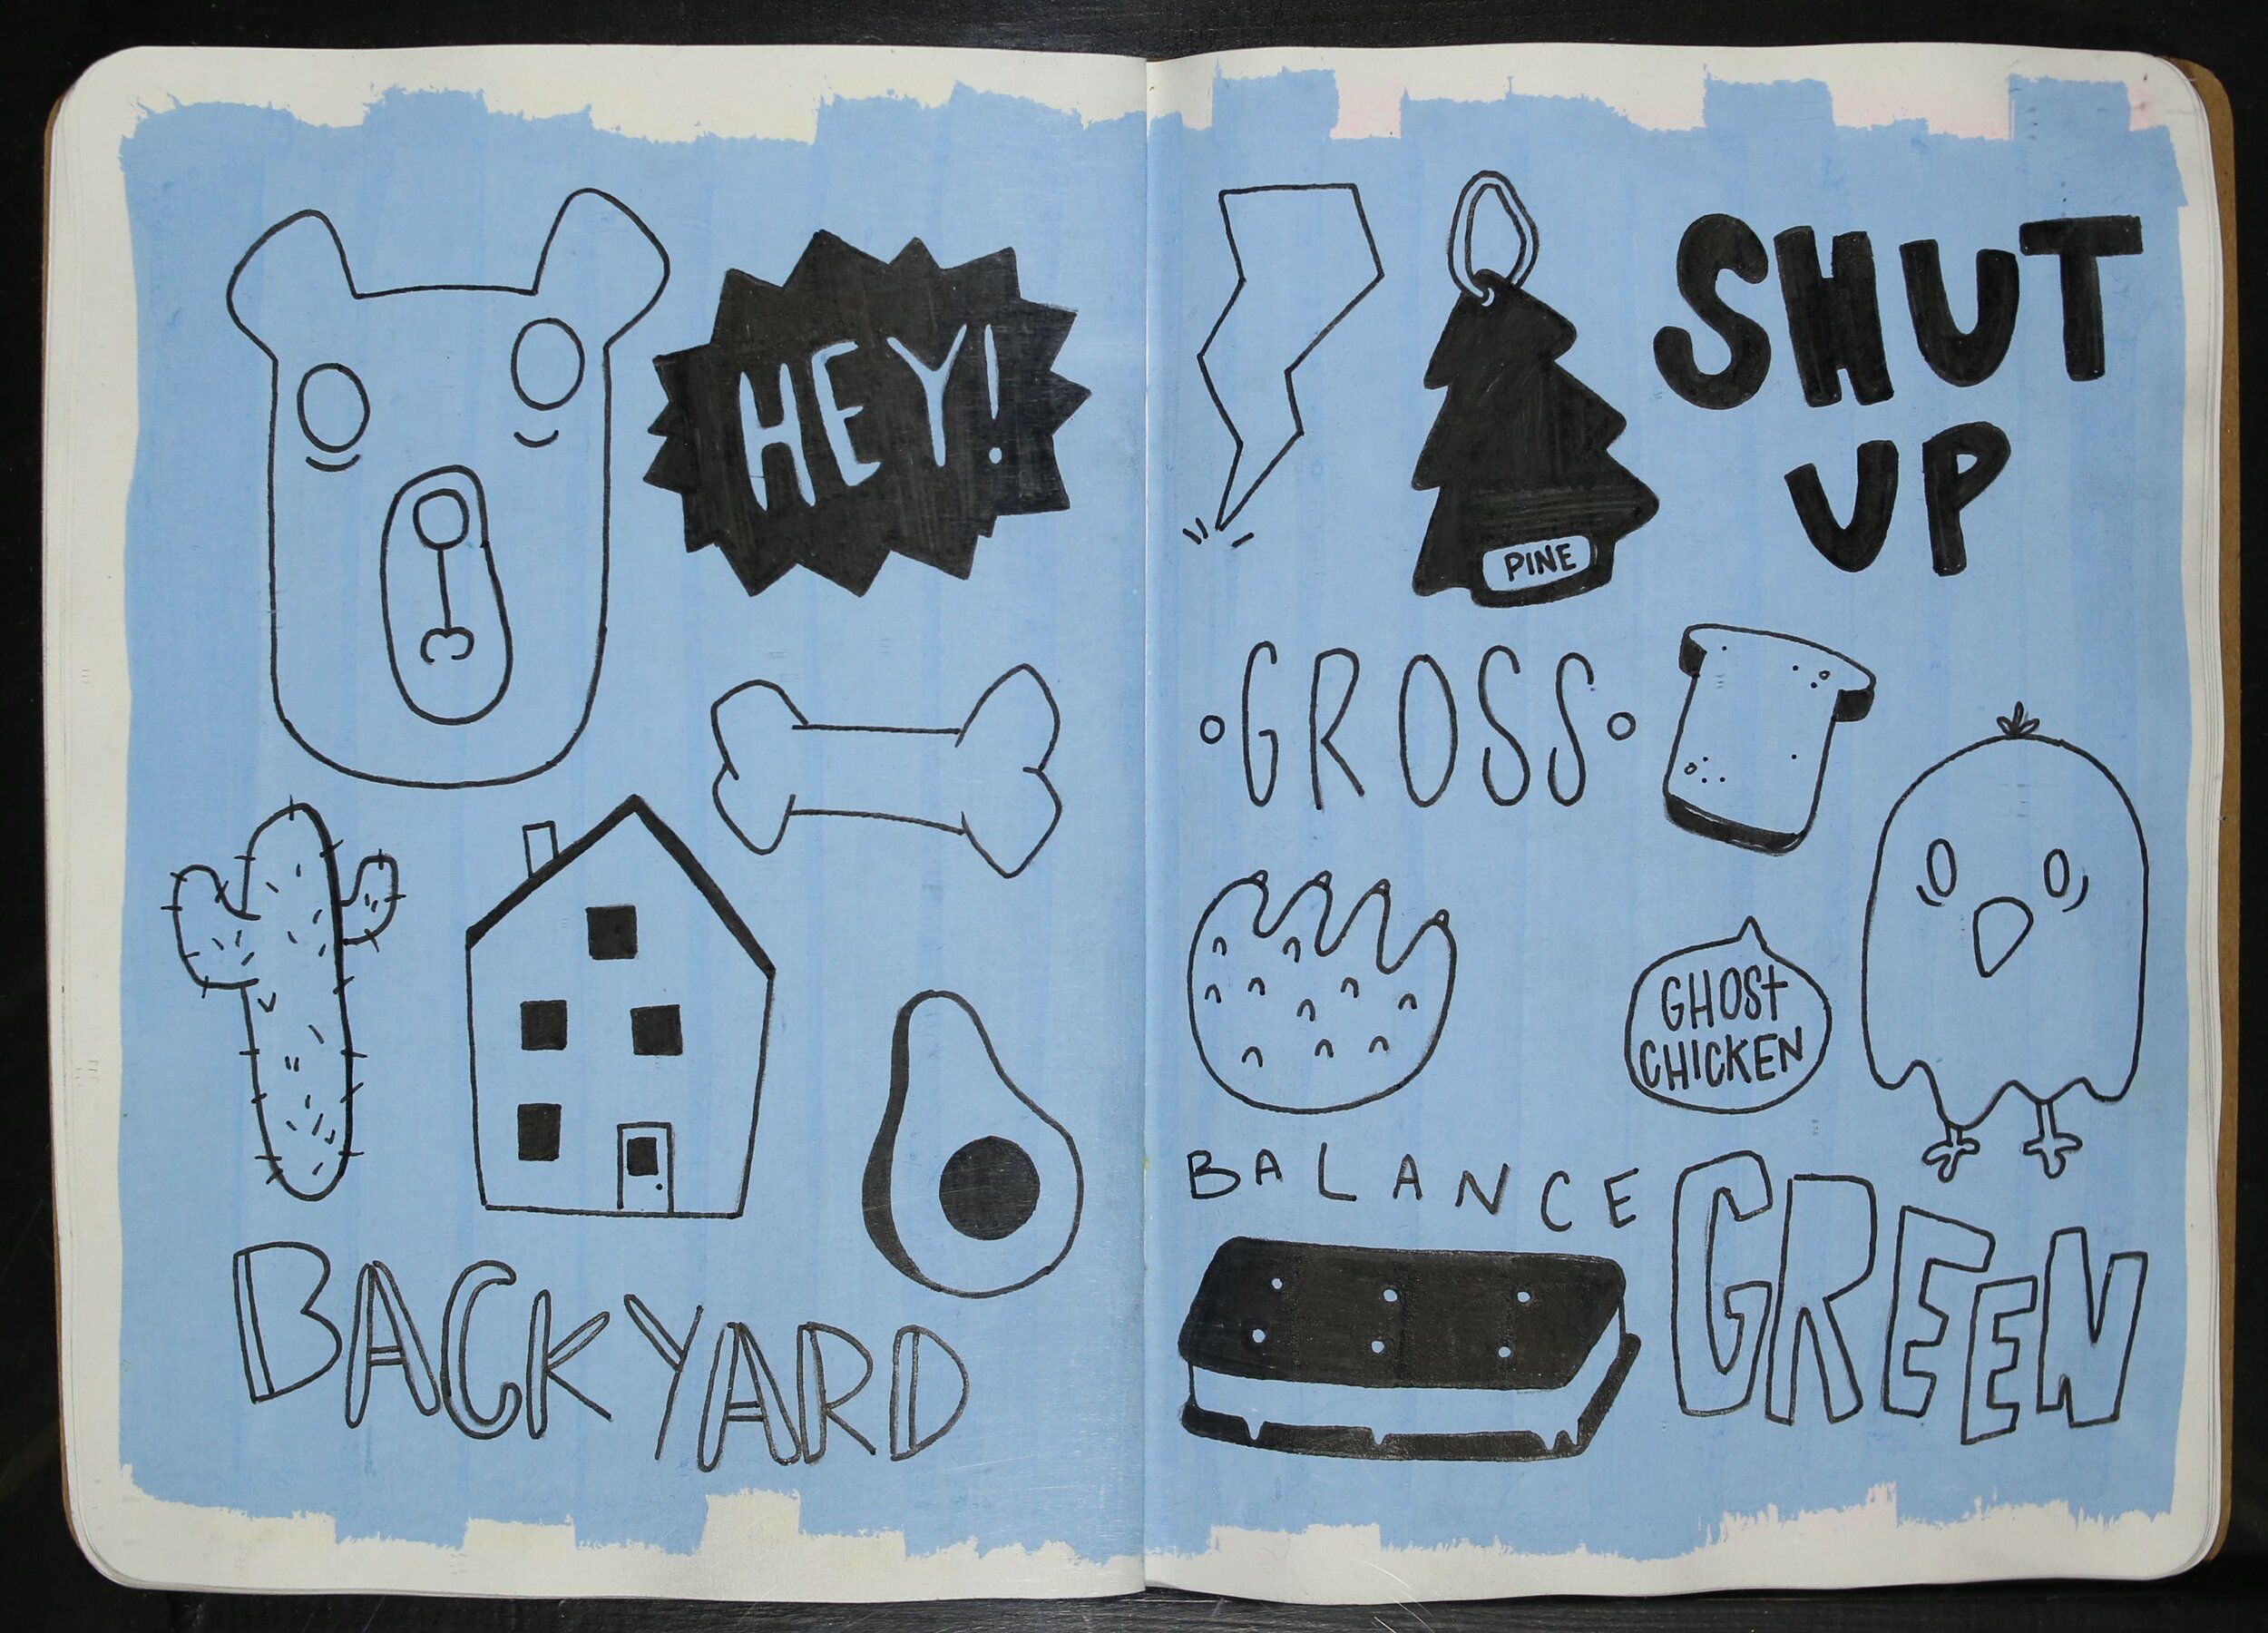 HEY!
BACKYARD
SHUT
UP
PINE
GROSS
GHOST
CHICKEN
BALANCE
GREEN